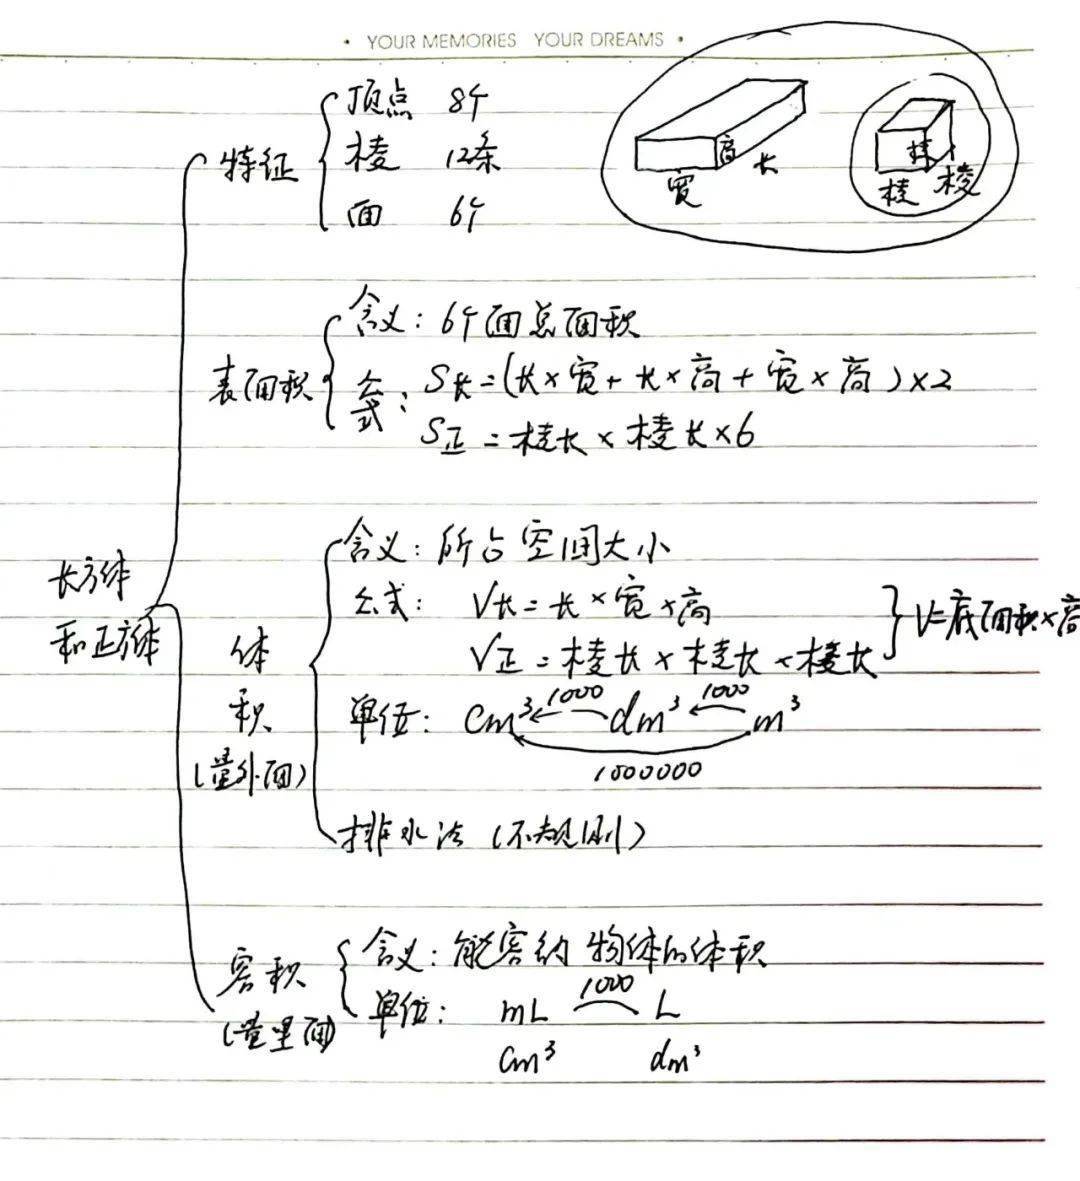 • YOUR MEMORIES YOUR DREAMS •
顶点 8个
特征 棱 12条
面 6个
宽 高 长
棱 棱 棱
含义：6个面总面积
表面积 公式：S长=(长×宽+长×高+宽×高)×2
S正=棱长×棱长×6
长方体
和正方体
体
积
(量外面)
含义：所占空间大小
公式：V长=长×宽×高
V正=棱长×棱长×棱长
V=底面积×高
单位：cm³ 1000 dm³ 1000 m³
1000000
排水法(不规则)
容积
(量里面)
含义：能容纳物体的体积
单位：mL 1000 L
cm³ dm³